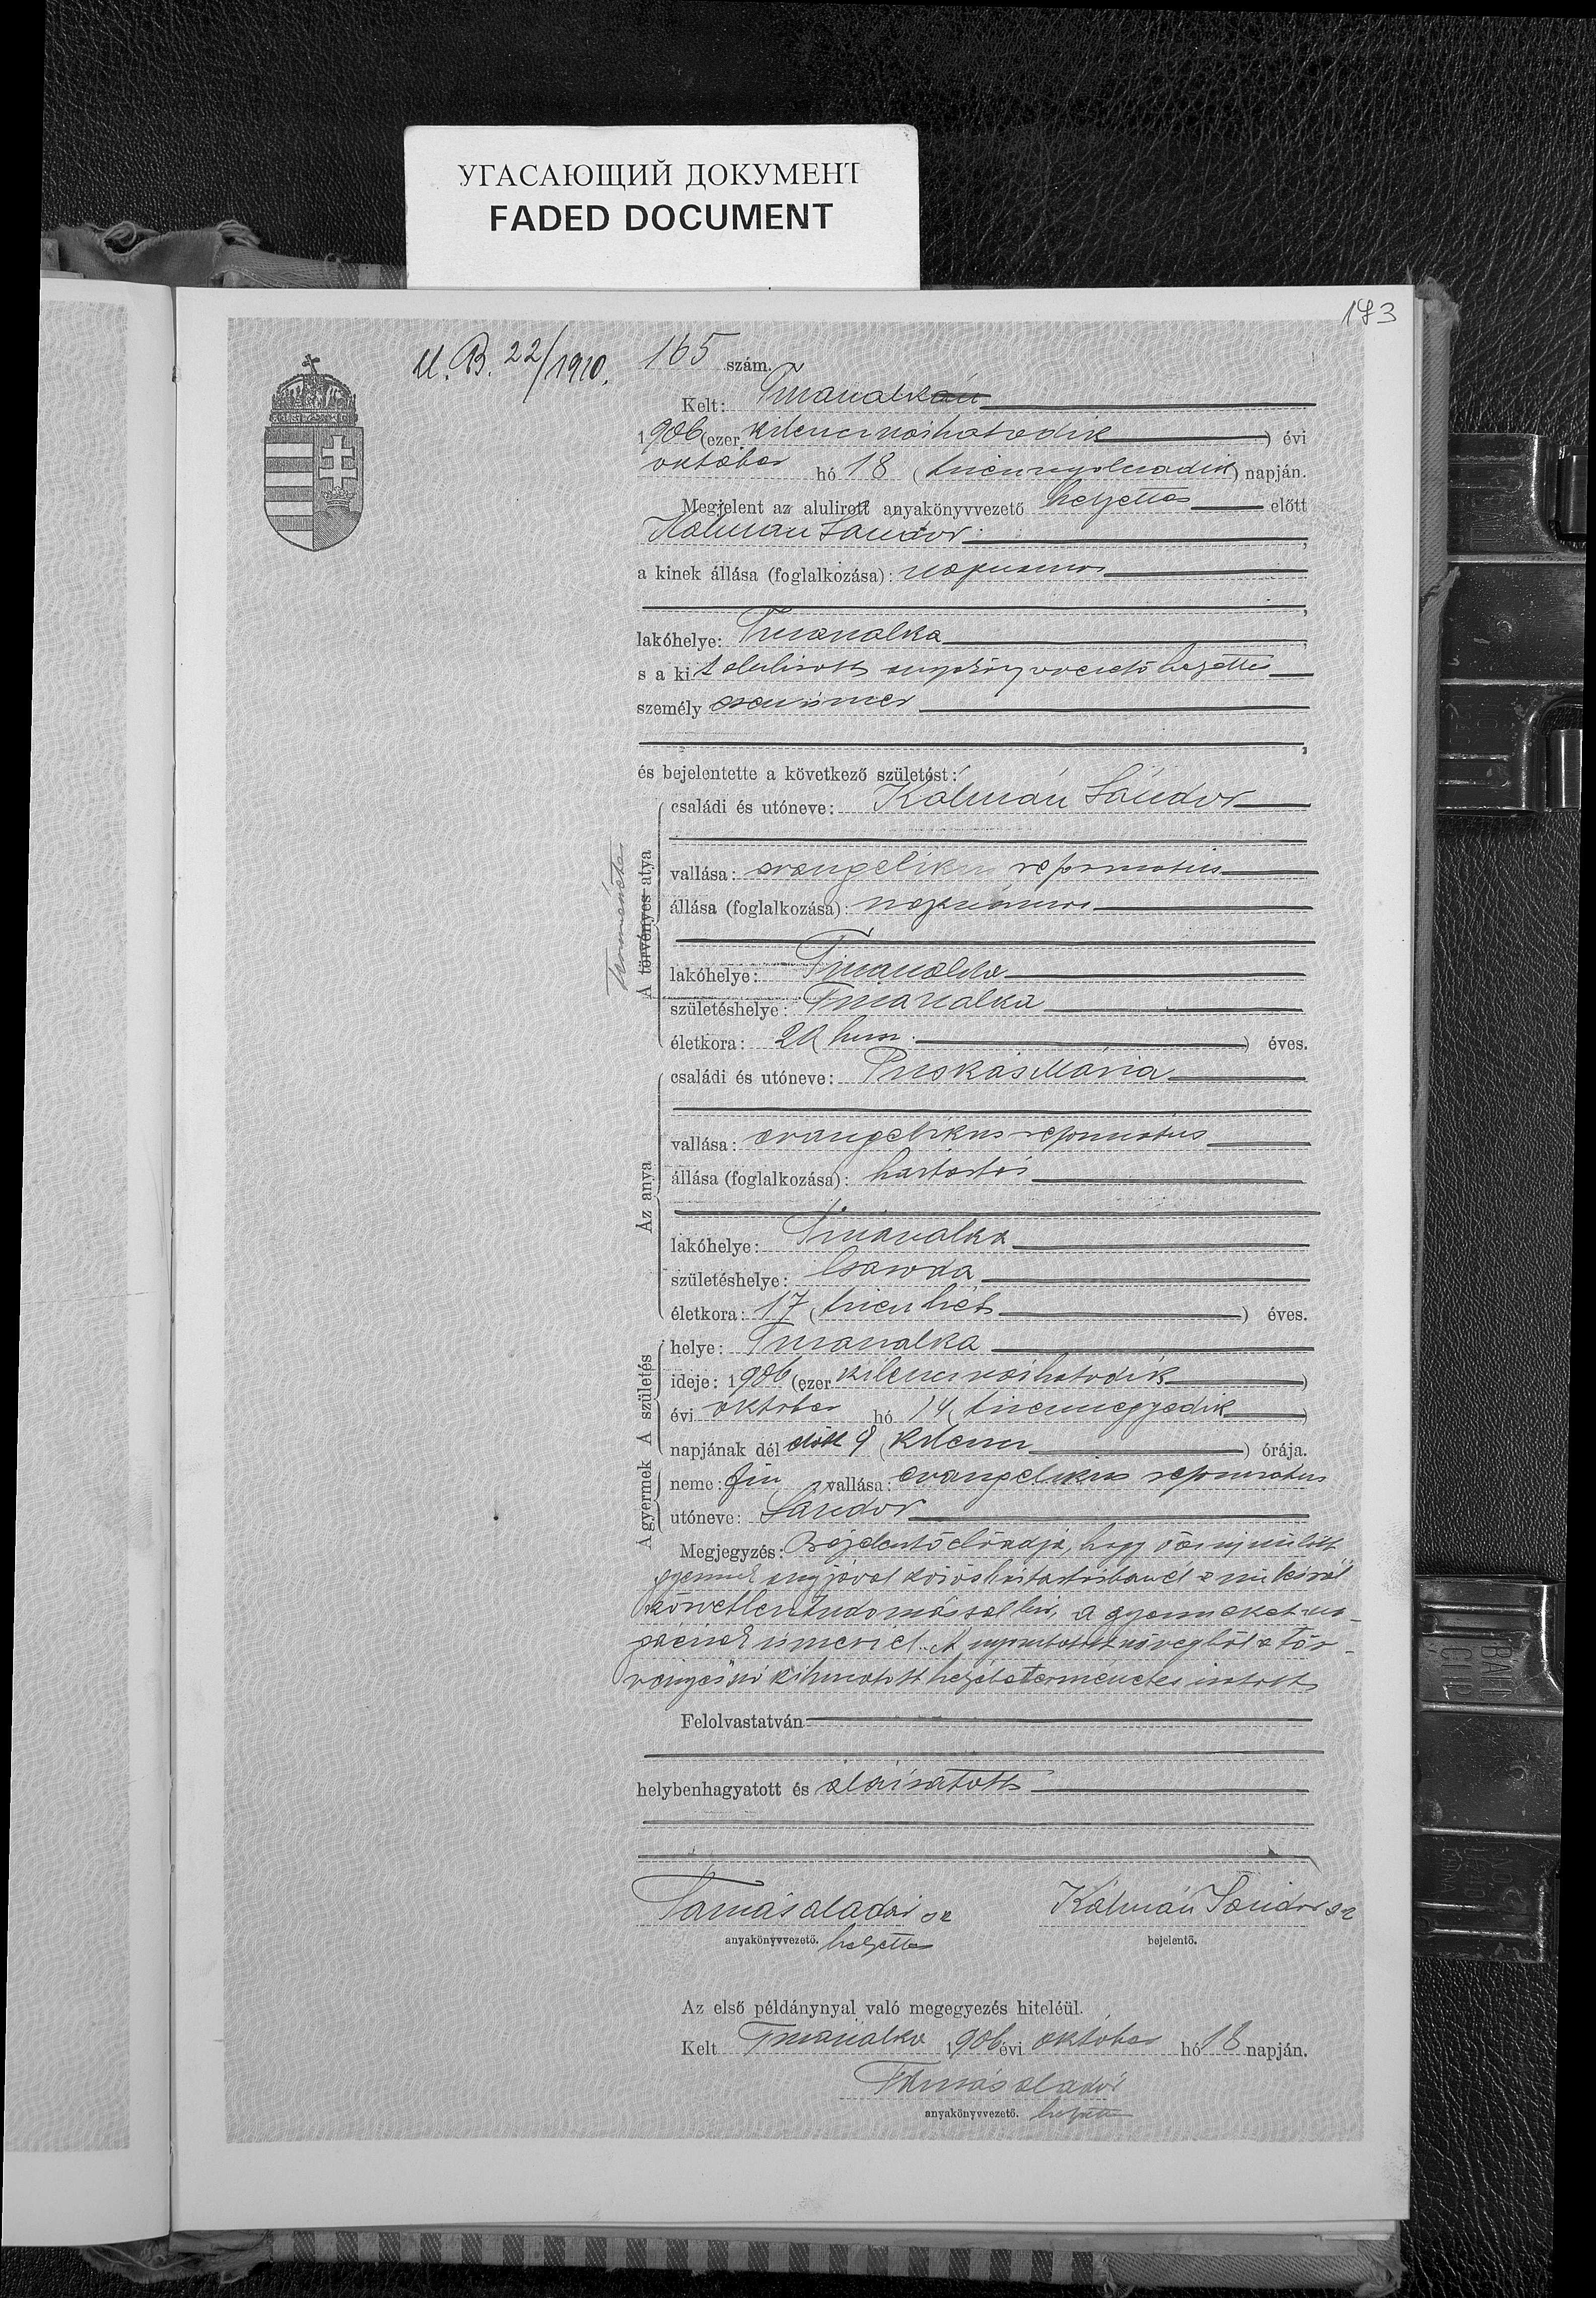 УГАСАЮЩИЙ ДОКУМЕНТ
FADED DOCUMENT
183
U. B. 22/1910.
165 szám.
Kelt: Tiszavalkán
1906 (ezer kilencszázhatodik) évi
október hó 18 (tizennyolcadik) napján.
Megjelent az alulirott anyakönyvvezető helyettes előtt
Kálmán Sándor,
a kinek állása (foglalkozása): napszámos
lakóhelye: Tiszavalka
s a kit alulirott anyakönyvvezető helyettes
személyesen ismer
és bejelentette a következő születést:
A törvényes atya
természetes
családi és utóneve: Kálmán Sándor
vallása: evangelikus reformatus
állása (foglalkozása): napszámos
lakóhelye: Tiszavalka
születéshelye: Tiszavalka
életkora: 20 (husz) éves.
Az anya
családi és utóneve: Puskás Mária
vallása: evangelikus reformatus
állása (foglalkozása): háztartás
lakóhelye: Tiszavalka
születéshelye: Csaroda
életkora: 17 (tizenhét) éves.
A születés
helye: Tiszavalka
ideje: 1906 (ezer kilencszázhatodik)
évi október hó 14 (tizennegyedik)
napjának dél előtt 9 (kilenc) órája.
A gyermek
neme: fiu vallása: evangelikus reformatus
utóneve: Sándor
Megjegyzés: Bejelentő előadja, hogy az ujszülött
gyermek anyjával közös háztartásban él a szülésről
közvetlen tudomással bir, a gyermeket ma-
gáénak ismeri el. A nyomtatott szövegből a tör-
vényes szó kihuzatott helyébe természetes iratott
Felolvastatván
helybenhagyatott és aláiratott
Tamás Aladár sk
anyakönyvvezető. helyettes
Kálmán Sándor sk
bejelentő.
Az első példánynyal való megegyezés hiteléül.
Kelt Tiszavalka 1906 évi október hó 18 napján.
Tamás Aladár
anyakönyvvezető. helyettes